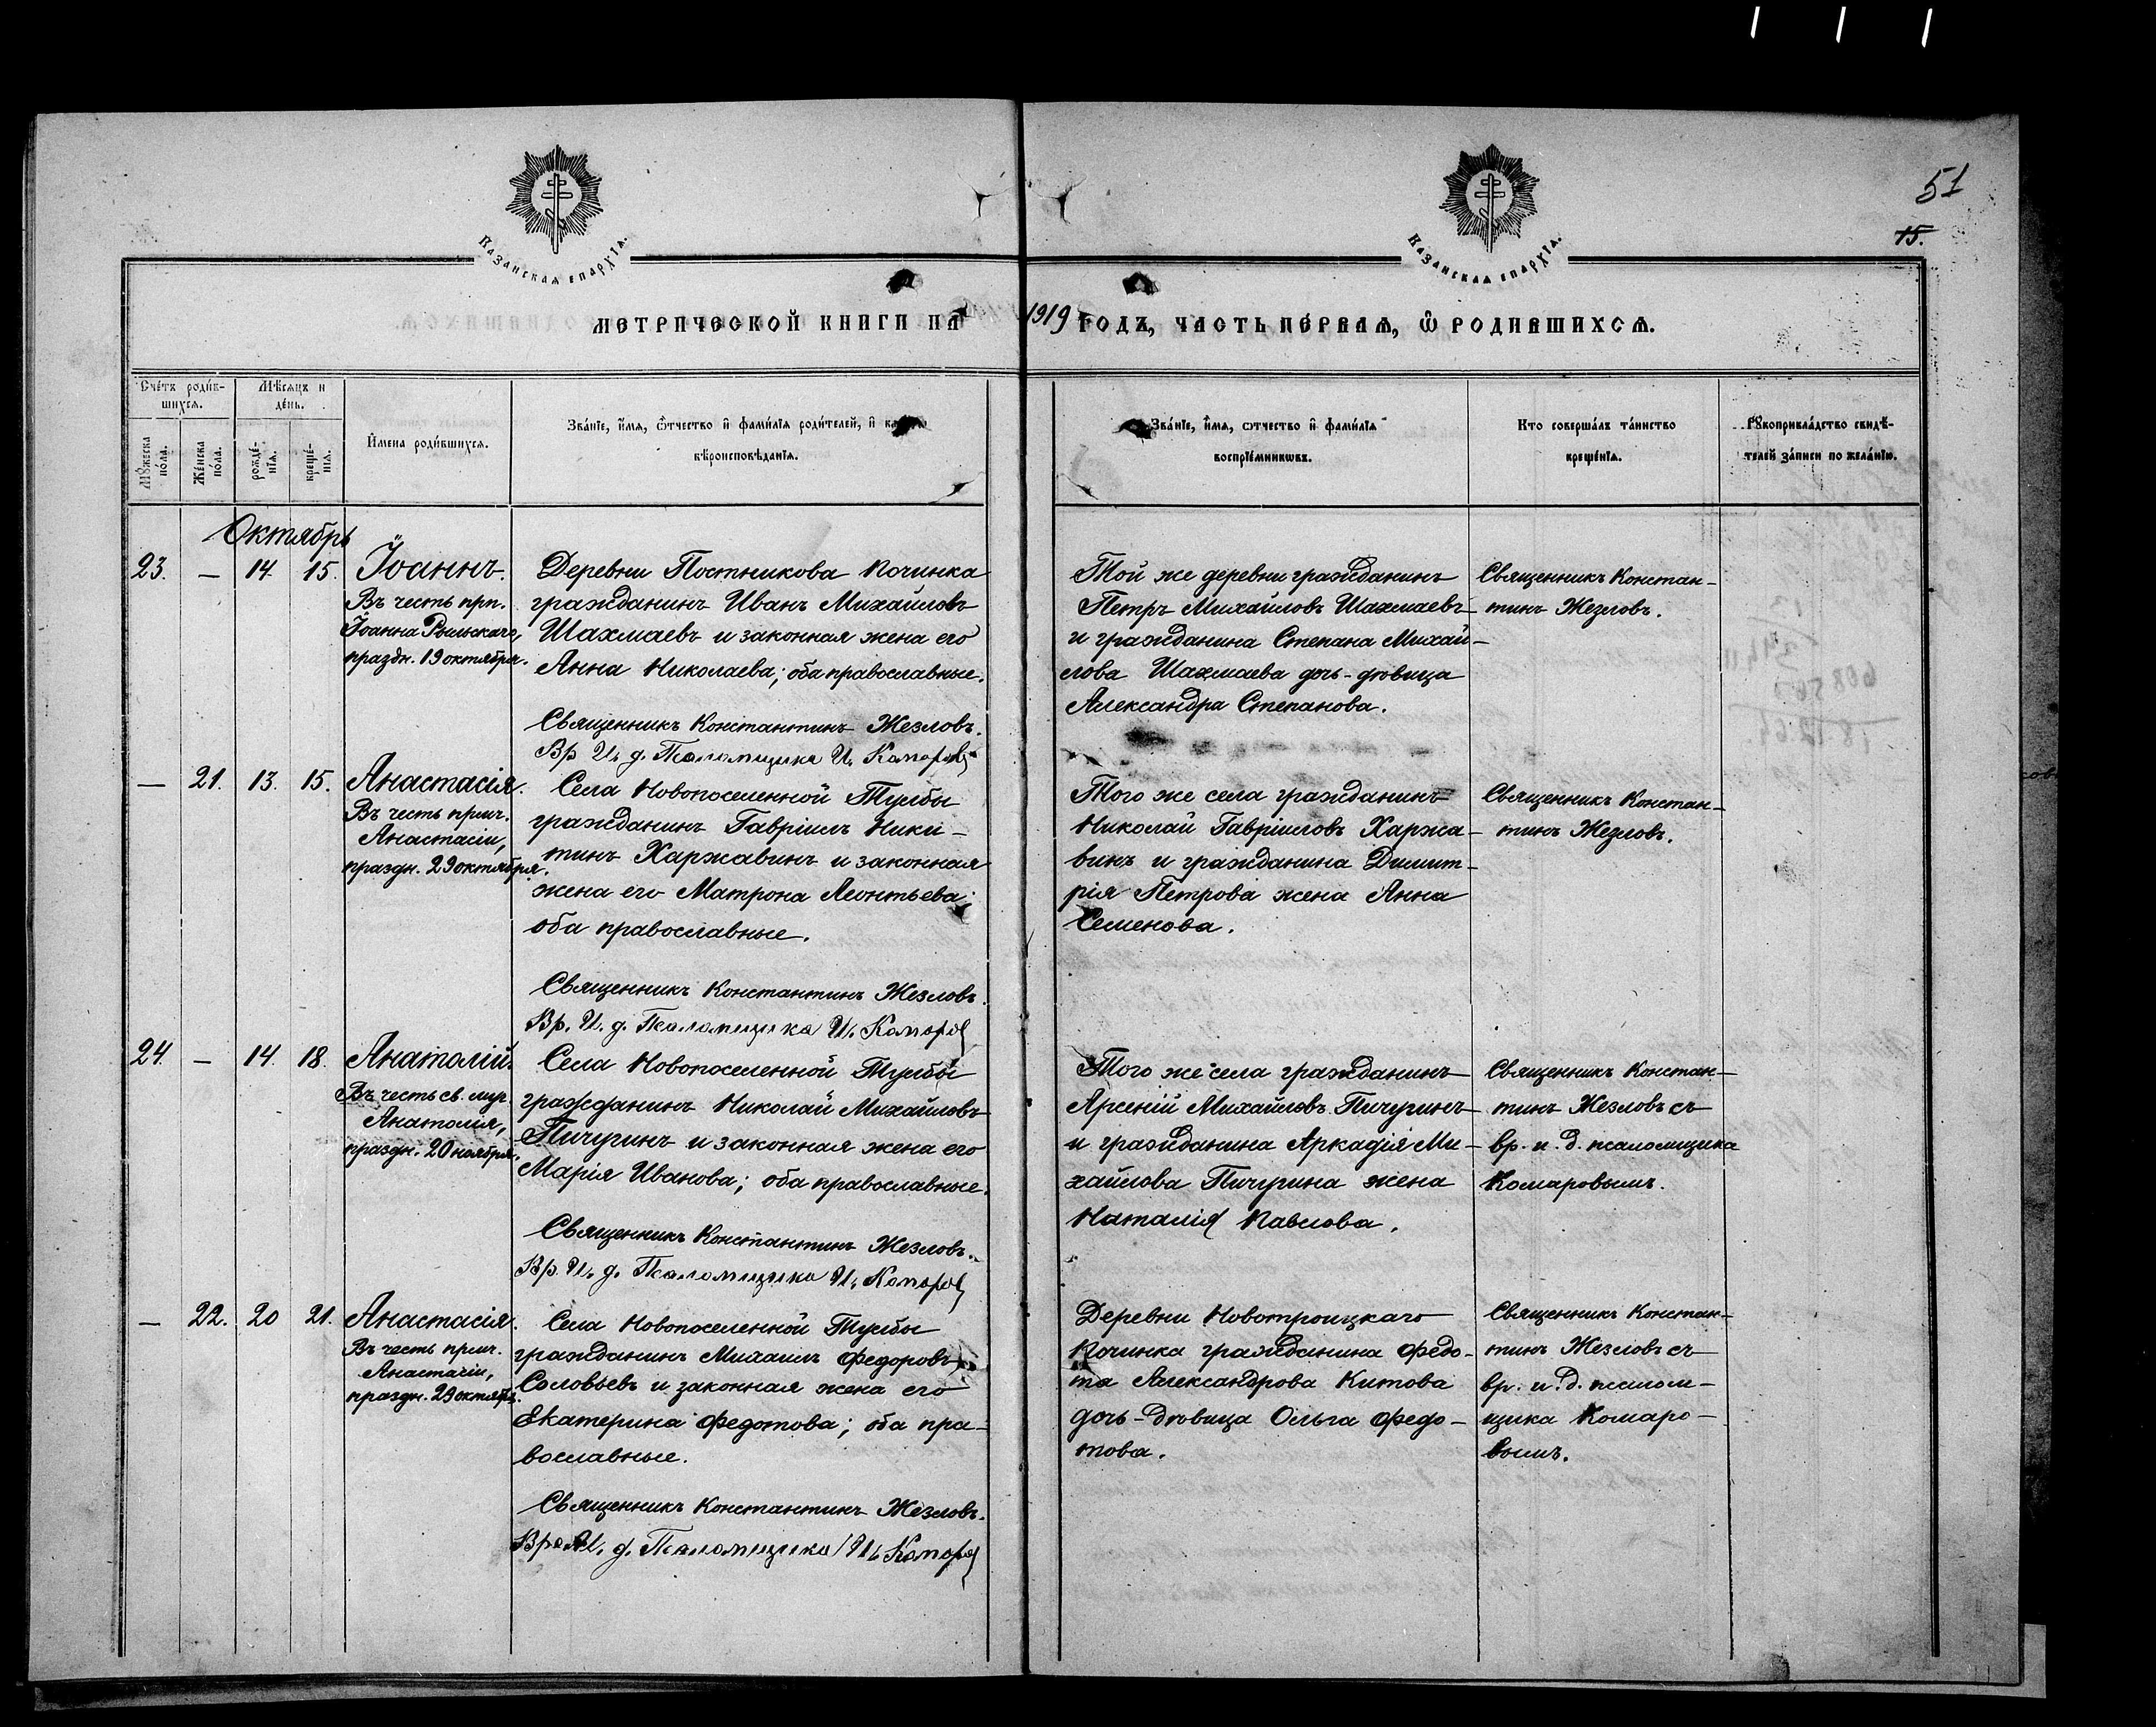 51
15.
Казанская епархїа.
Казанская епархїа.
МЕТРИЧЕСКОЙ КНИГИ НА 1919 ГОДЪ, ЧАСТЬ ПЕРВАЯ, Ѿ РОДИВШИХСЯ.
Сче́тъ роди́в-
шихся.
Мѣсяцъ и
де́нь.
Мꙋ́жеска
по́ла.
Же́нска
по́ла.
рожде́-
нїя.
креще́-
нїя.
И҆мена роди́вшихся.
Зва́нїе, и҆́мя, ѻ҆́тчество и҆ фами́лїя роди́телей, и҆
вѣроисповѣ́данїя.
Зва́нїе, и҆́мя, ѻ҆тчество и҆ фами́лїя
воспрїе́мникωвъ.
Кто соверша́лъ та́инство
креще́нїя.
Рꙋкоприкла́дство свидѣ́-
телей за́писи по жела́нїю.
Октябрь
23. — 14. 15. Іоаннъ.
Въ честь прп.
Іоанна Рыльскаго,
праздн. 19 октября.
Деревни Постникова Починка
гражданинъ Иванъ Михайловъ
Шахмаевъ и законная жена его
Анна Николаева; оба православные.
Священникъ Константинъ Жезловъ.
Вр. И. д. Псаломщика И. Комаров
Той же деревни гражданинъ
Петръ Михайловъ Шахмаевъ
и гражданина Степана Михай-
лова Шахмаева дочь-дѣвица
Александра Степанова.
Священникъ Констан-
тинъ Жезловъ.
— 21. 13. 15. Анастасія.
Въ честь прмч.
Анастасіи,
праздн. 29 октября.
Села Новопоселенной Тумбы
гражданинъ Гавріилъ Ники-
тинъ Харжавинъ и законная
жена его Матрона Леонтьева;
оба православные.
Священникъ Константинъ Жезловъ.
Вр. И. д. Псаломщика И. Комаров
Того же села гражданинъ
Николай Гавріиловъ Харжа-
винъ и гражданина Димит-
рія Петрова жена Анна
Семенова.
Священникъ Констан-
тинъ Жезловъ.
24. — 14. 18. Анатолій.
Въ честь св. муч.
Анатолія,
праздн. 20 ноября.
Села Новопоселенной Тумбы
гражданинъ Николай Михайловъ
Пичугинъ и законная жена его
Марія Иванова; оба православные.
Священникъ Константинъ Жезловъ.
Вр. И. д. Псаломщика И. Комаров
Того же села гражданинъ
Арсеній Михайловъ Пичугинъ
и гражданина Аркадія Ми-
хайлова Пичугина жена
Наталія Павлова.
Священникъ Констан-
тинъ Жезловъ съ
вр. и. д. псаломщика
Комаровымъ.
— 22. 20 21. Анастасія.
Въ честь прмч.
Анастасіи,
праздн. 29 октября.
Села Новопоселенной Тумбы
гражданинъ Михаилъ Федоровъ
Соловьевъ и законная жена его
Екатерина Федотова; оба пра-
вославные.
Священникъ Константинъ Жезловъ.
Вр. И. д. Псаломщика И. Комаров
Деревни Новотроицкаго
Починка гражданина Федо-
та Александрова Китова
дочь-дѣвица Ольга Федо-
това.
Священникъ Констан-
тинъ Жезловъ съ
вр. и. д. псалом-
щика Комаро-
вымъ.